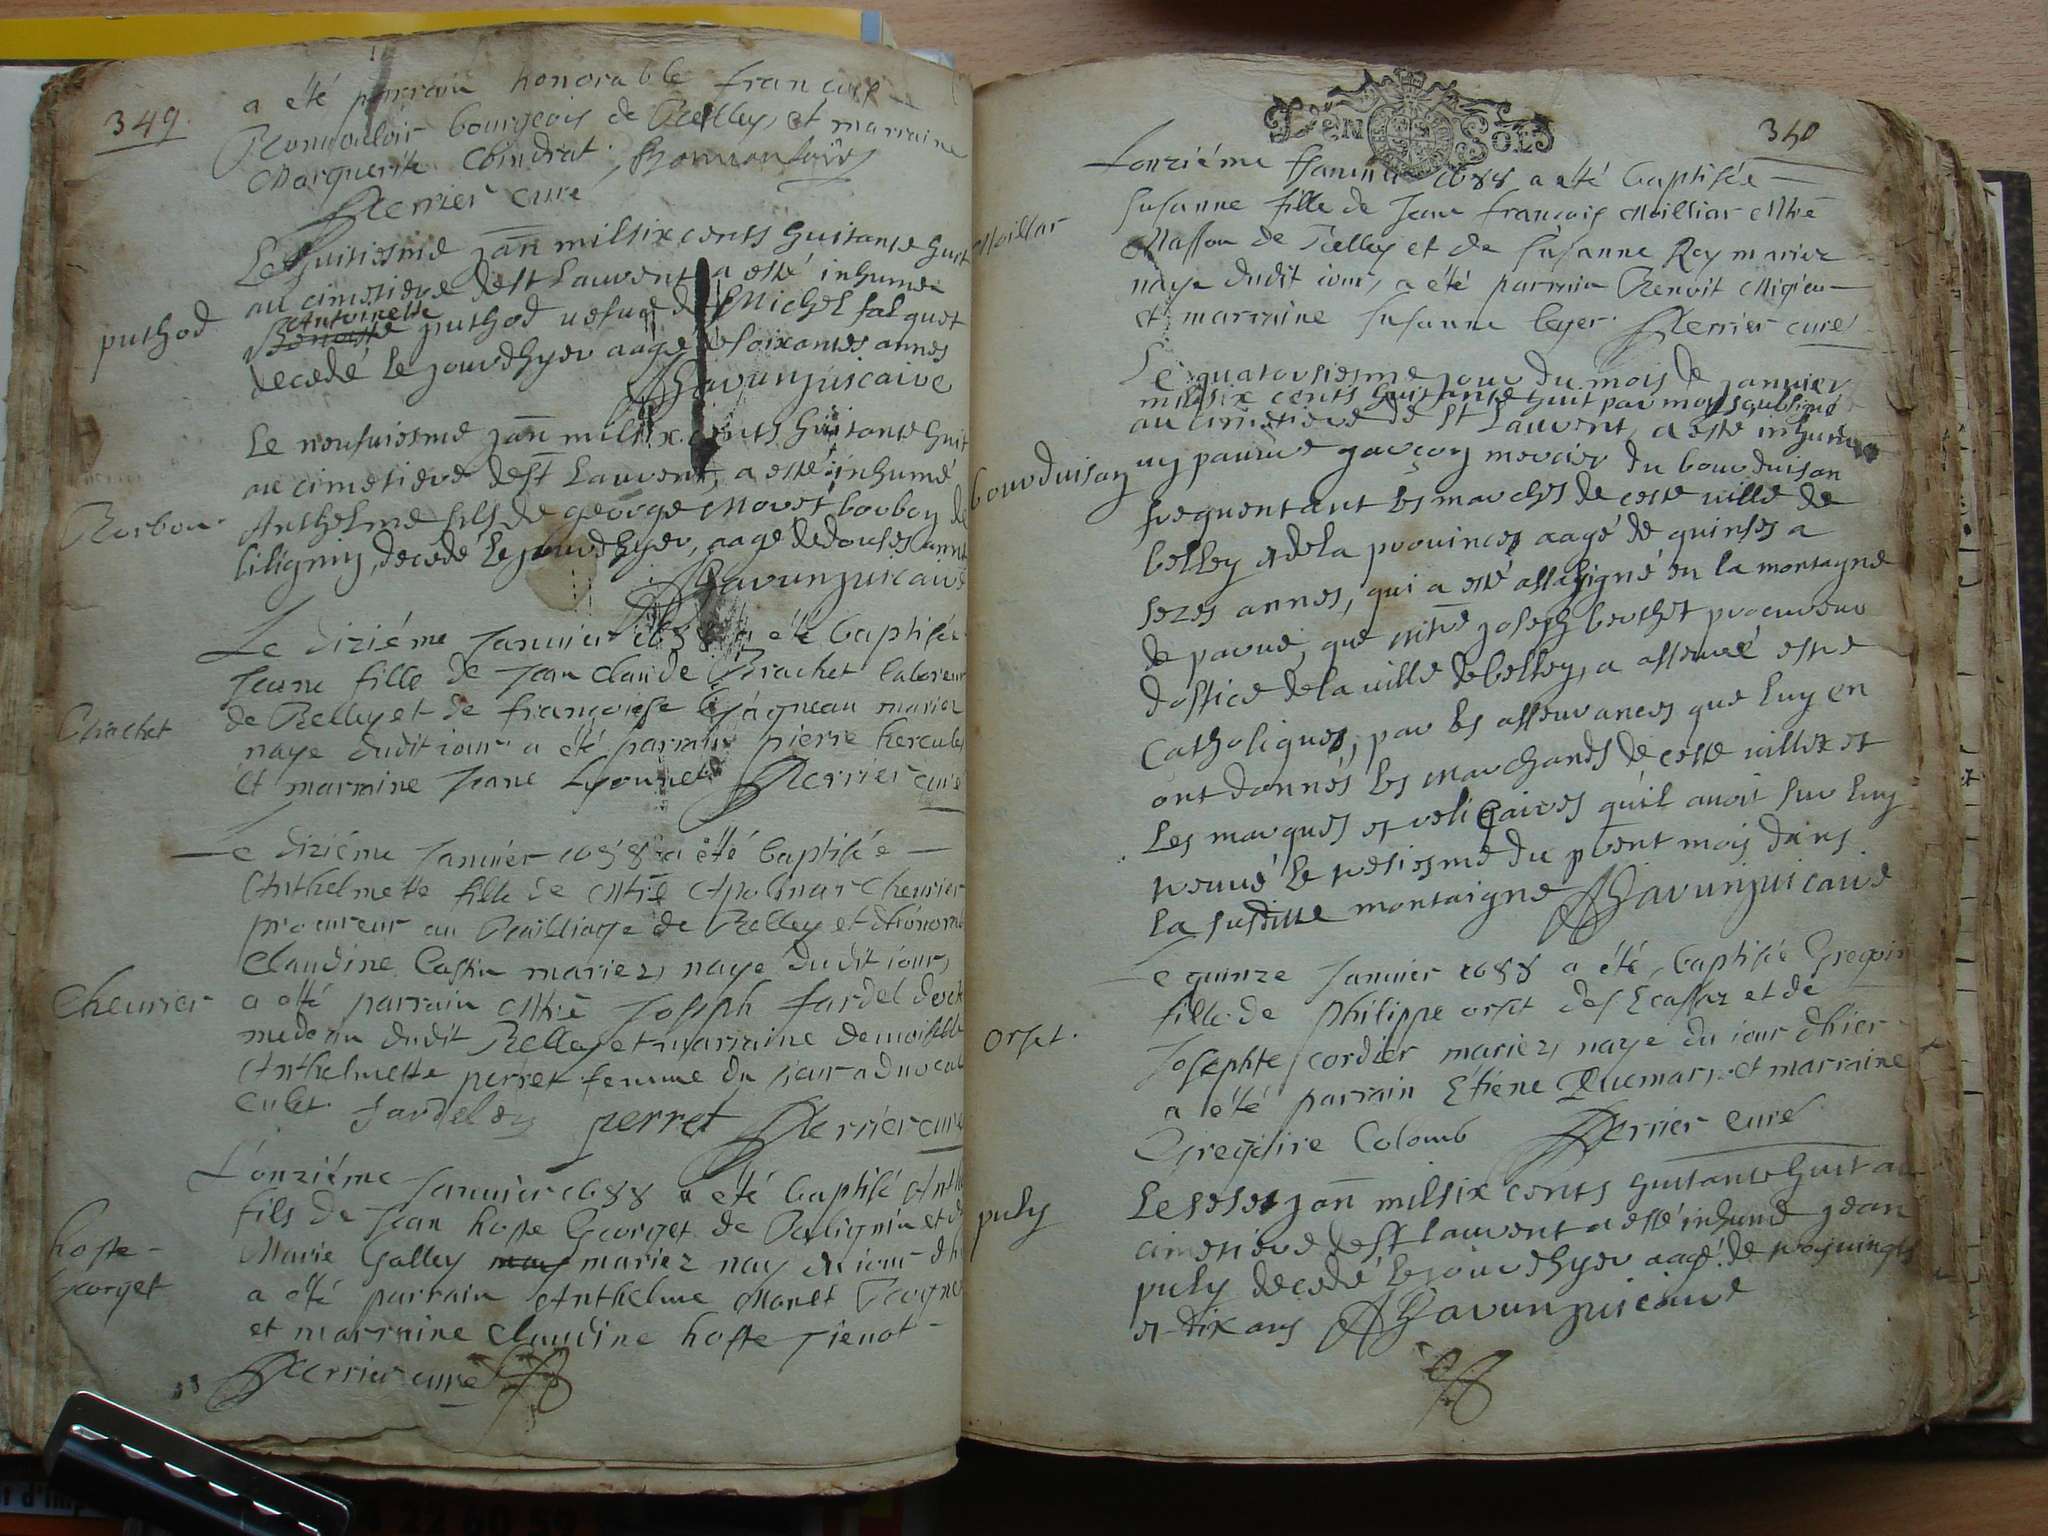 349.
a été parrain honorable francois
bourgeois de Belley, et marraine
Marguerite Chindrat.
Perrier curé
Le huitiesme jan̄ mil six cents huitante huit
au cimetiere de st Laurent a esté inhumé
puthod
Antoinette
Benoiste puthod vefve de Michel falquet
decedé le jour dhyer aagé de soixantes annes
Le neufviesme jan̄ mil six cents huitante huit
au cimetiere de st Laurent, a esté inhumé
Borbon
Anthelme fils de george Moret borbon de
decedé le jour dhyer, aagé de douses annes
Le diziéme Janvier 1688 a été baptisée
Jeane fille de Jean Claude Brachet laboreur
Brachet
de Belley et de françoise mariez
naye dudit iour a été parrain pierre hercules
et marraine Jeane Perrier curé
Le diziéme Janvier 1688 a été baptisée
Anthelmette fille de Mtre Apolinar Chevrier
procureur au Bailliage de Belley et dhonorable
Claudine Castin mariez, naye dudit iour,
Chevrier
a été parrain Mtre Joseph fardel
medecin dudit Belley et marraine demoiselle
Anthelmette perret femme du sieur advocat
Cullet fardel perret Perrier curé
L'onziéme Janvier 1688 a été baptisé
fils de Jean hoste Georget de et de
hoste
Georget
Marie Galley mariez nay du iour
a été parrain Anthelme Moret
et marraine Claudine hoste
Perrier curé
DEN SOLS
340
Lonziéme Janvier 1688 a été baptisée
Susanne fille de Jean francois Moilliar Mtre
Moillar
Masson de Belley et de Susanne Rey mariez
naye dudit iour, a été parrain Benoit
et marraine Susanne leger. Perrier curé
Le quatorsiesme jour du mois de janvier
mil six cents huitante huit par moy soubsigné
au cimetiere de st Laurent, a esté inhumé
bourduison
un pauvre garçon mercier du bourduison
frequentant les marches de ceste ville de
belley et de la province, aagé de quinses a
sezes annes, qui a esté assassigné en la montagne
de parve, que mtre joseph berthet procureur
doffice de la ville de belley, a asseuré estre
Catholique, par les asseurances que luy en
ont donnés les marchands de ceste ville et
les marques et reliquaires qu'il avoit sur luy
treuvé le tresiesme du pnt mois dans
la susditte montaigne
Le quinze Janvier 1688 a été baptisée
fille de philippe orset des Ecassaz et de
orset.
Josephte cordier mariez, naye du iour dhier
a été parrain Etiene et marraine
Gregoire Colomb Perrier curé
Le seses jan̄ mil six cents huitante huit au
puly
cimetiere de st Laurent a esté inhumé jean
puly decedé le jour dhyer aagé de troy vingts
et dix ans